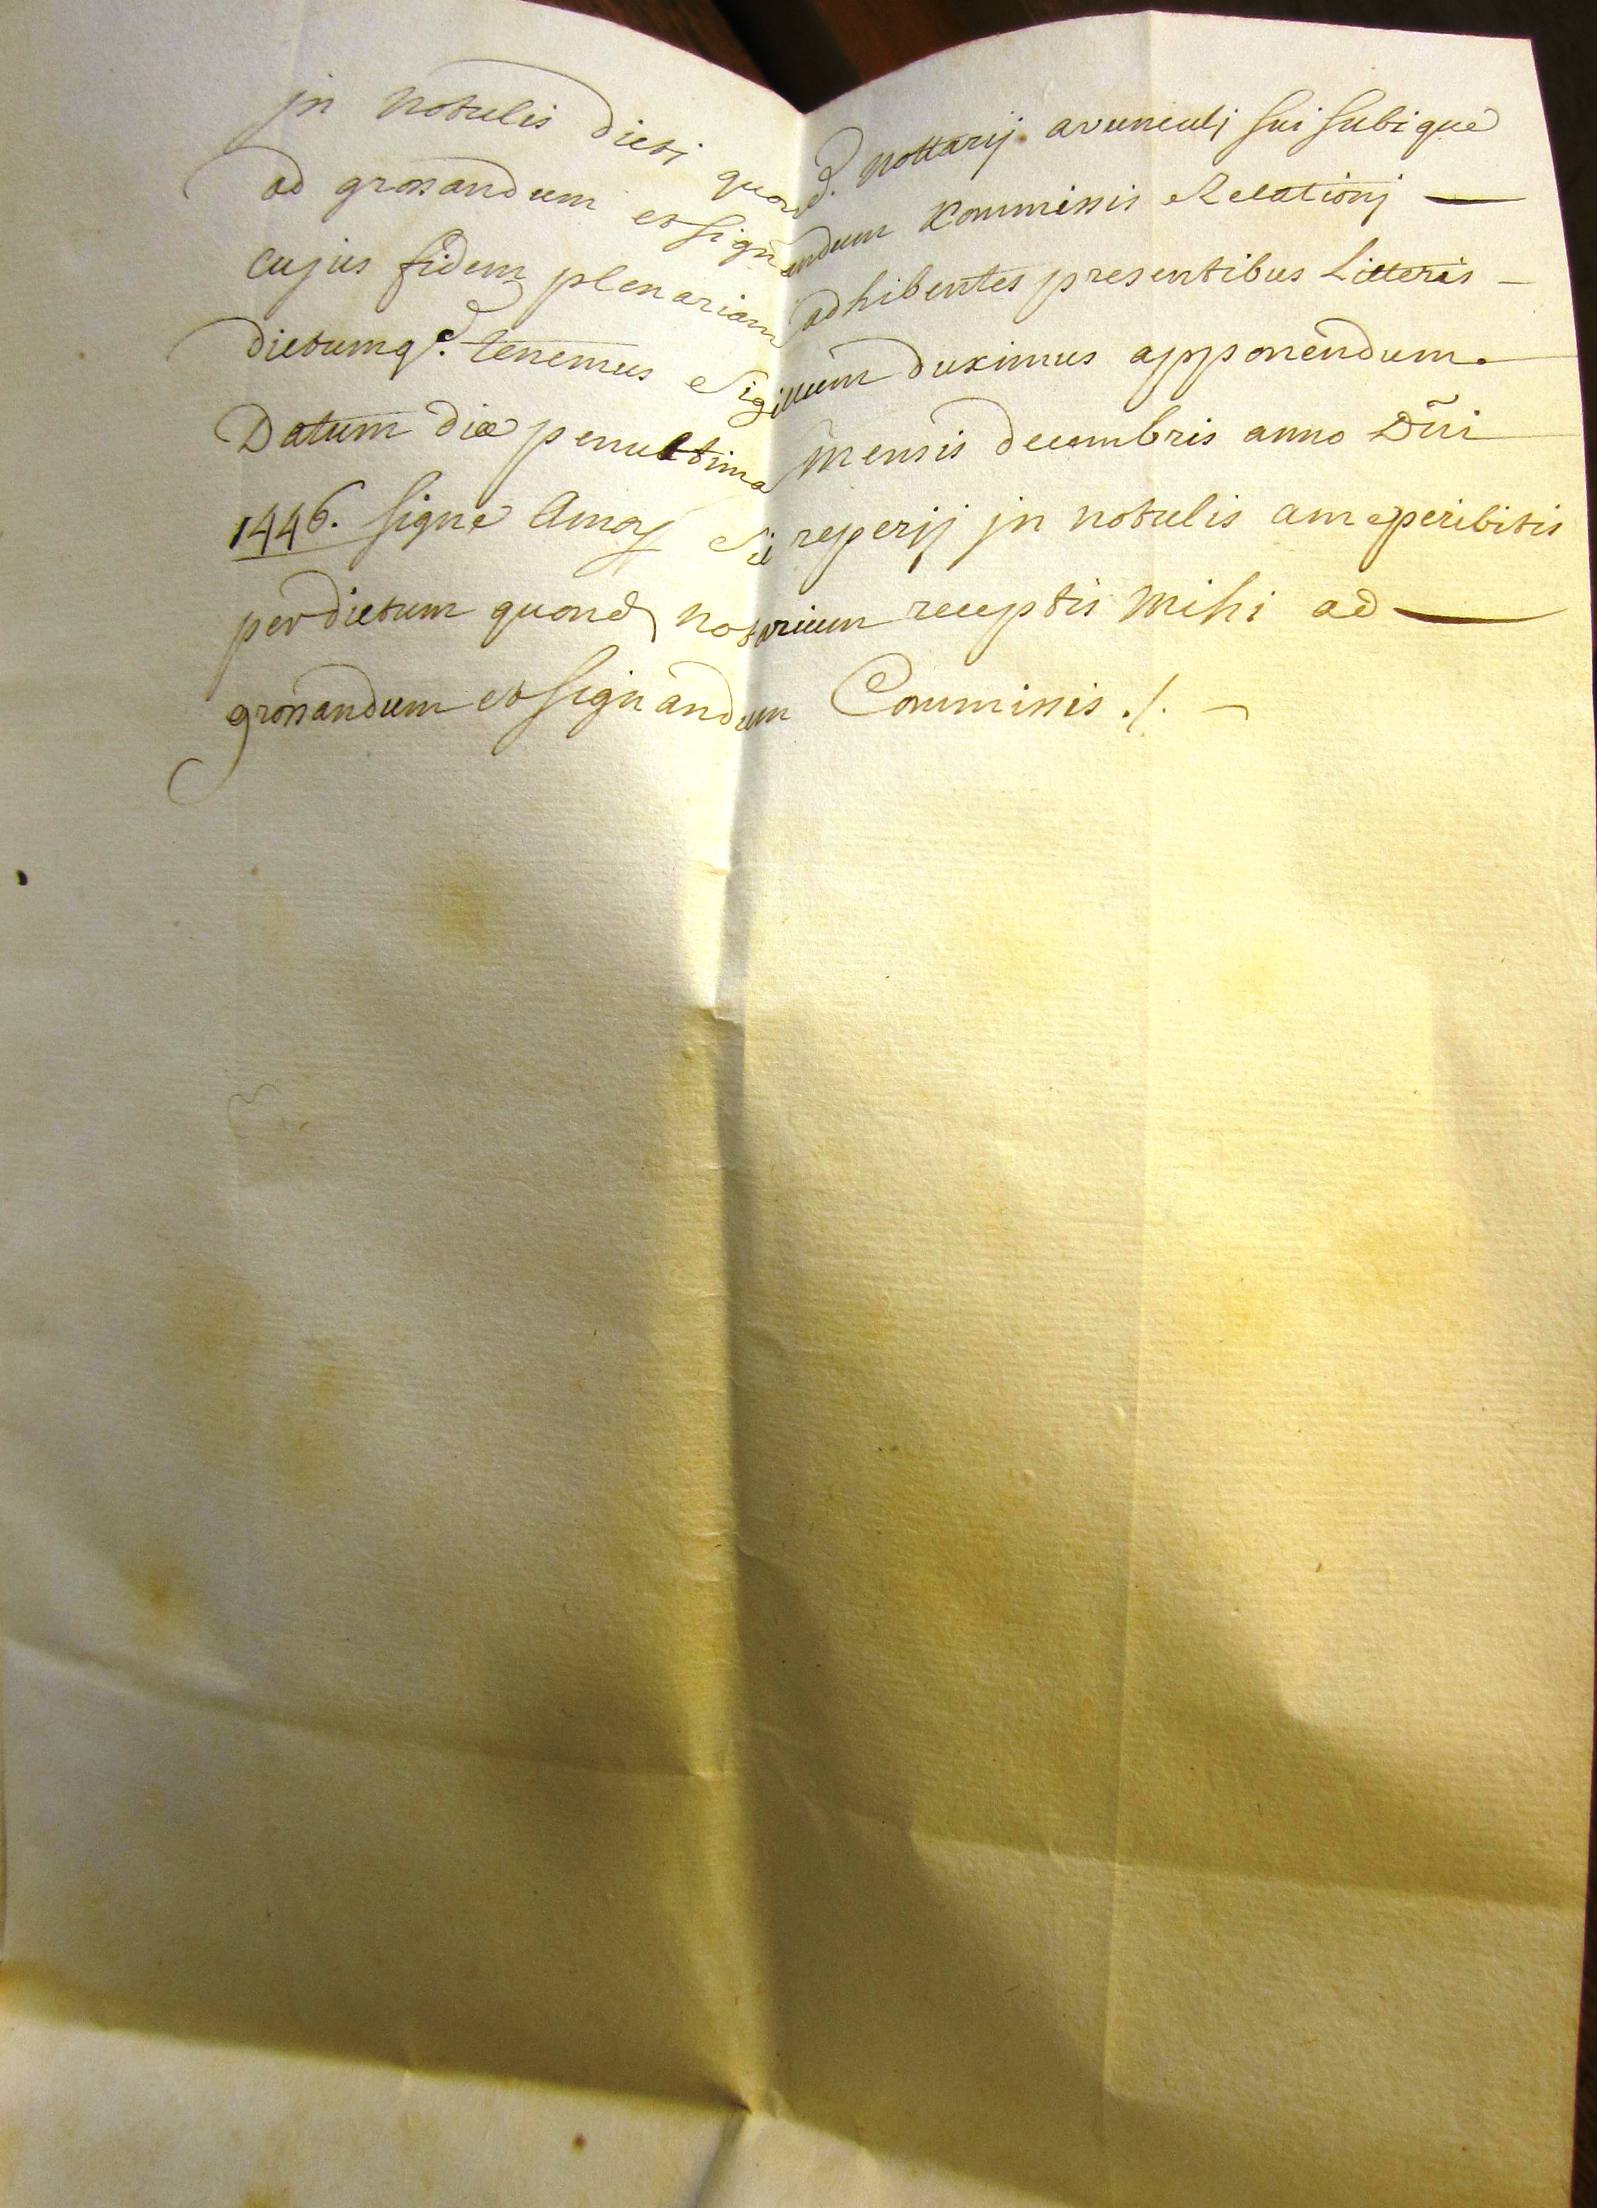 jn notulis dicti quond. nottarij avunculj sui subi que
ad grossandum et signandum Commissis Relationj
cujus fidem plenariam adhibentes presentibus Litteris
dictumq. tenemus Sigillum duximus apponendum.
Datum die penultima mensis decembris anno Dñi
1446. signé Amoy Sic reperij jn notulis am
per dictum quond notarium receptis mihi ad
grossandum et signandum Commissis ./.